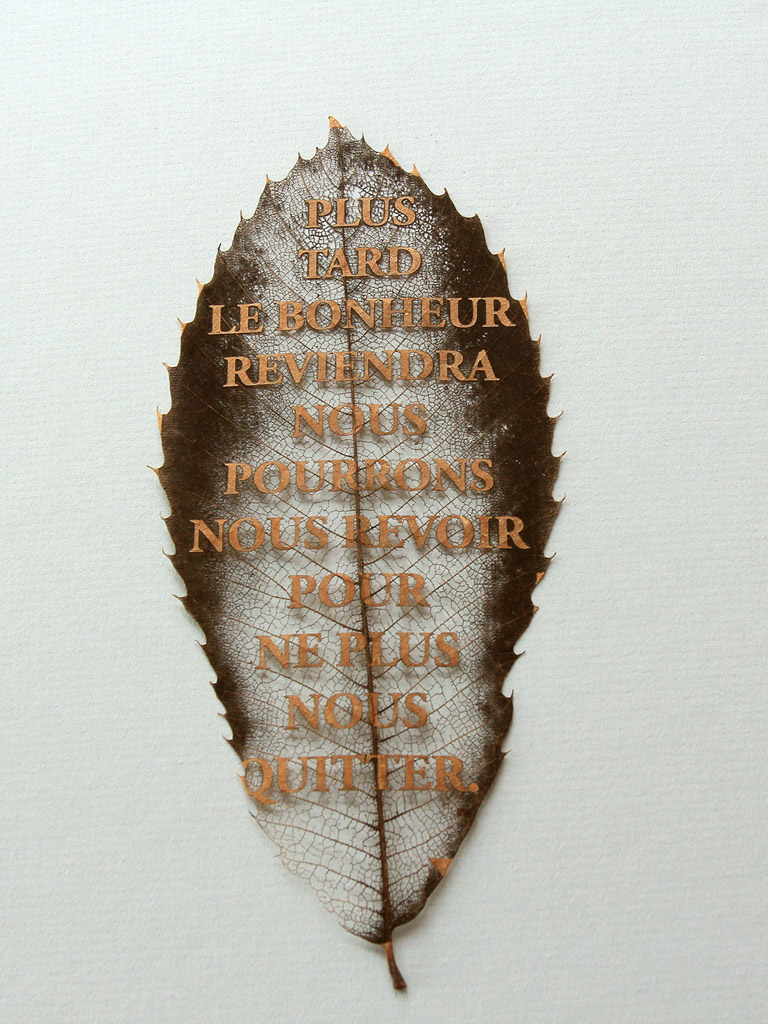 PLUS
TARD
LE BONHEUR
REVIENDRA
NOUS
POURRONS
NOUS REVOIR
POUR
NE PLUS
NOUS
QUITTER.